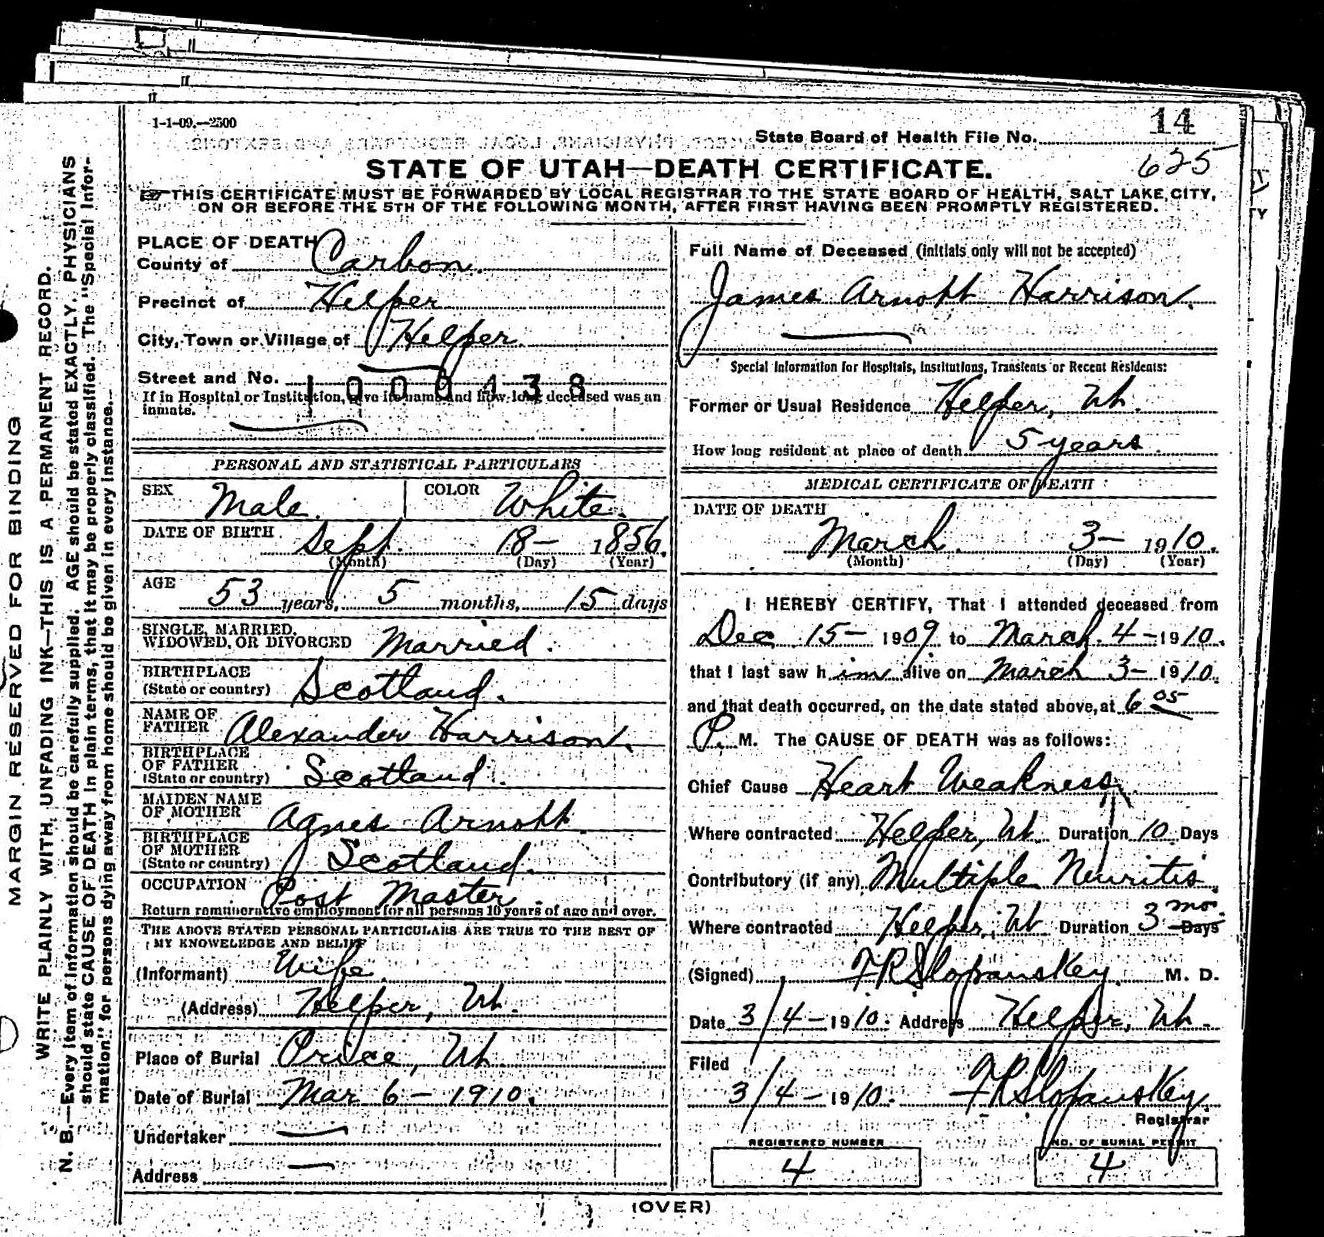 1-1-09.—2500
14
State Board of Health File No.
625
STATE OF UTAH—DEATH CERTIFICATE.
THIS CERTIFICATE MUST BE FORWARDED BY LOCAL REGISTRAR TO THE STATE BOARD OF HEALTH, SALT LAKE CITY,
ON OR BEFORE THE 5TH OF THE FOLLOWING MONTH, AFTER FIRST HAVING BEEN PROMPTLY REGISTERED.
MARGIN RESERVED FOR BINDING
WRITE PLAINLY WITH UNFADING INK—THIS IS A PERMANENT RECORD.
N. B.—Every item of information should be carefully supplied. AGE should be stated EXACTLY. PHYSICIANS
should state CAUSE OF DEATH in plain terms, that it may be properly classified. The "Special Infor-
mation" for persons dying away from home should be given in every instance.
PLACE OF DEATH
County of Carbon.
Precinct of Helper
City, Town or Village of Helper.
Street and No.
1000438
If in Hospital or Institution, give its name and how long deceased was an
inmate.
PERSONAL AND STATISTICAL PARTICULARS
SEX Male. COLOR White.
DATE OF BIRTH Sept. 18— 1856.
(Month) (Day) (Year)
AGE 53 years, 5 months, 15 days
SINGLE, MARRIED,
WIDOWED, OR DIVORCED Married.
BIRTHPLACE
(State or country) Scotland.
NAME OF
FATHER Alexander Harrison.
BIRTHPLACE
OF FATHER
(State or country) Scotland.
MAIDEN NAME
OF MOTHER Agnes Arnott.
BIRTHPLACE
OF MOTHER
(State or country) Scotland.
OCCUPATION Post Master.
Return remunerative employment for all persons 10 years of age and over.
THE ABOVE STATED PERSONAL PARTICULARS ARE TRUE TO THE BEST OF
MY KNOWELEDGE AND BELIEF
(Informant) Wife
(Address) Helper, Ut.
Place of Burial Price, Ut.
Date of Burial Mar 6— 1910.
Undertaker —
Address —
Full Name of Deceased (initials only will not be accepted)
James Arnott Harrison.
Special Information for Hospitals, Institutions, Transients or Recent Residents:
Former or Usual Residence Helper, Ut.
How long resident at place of death 5 years.
MEDICAL CERTIFICATE OF DEATH
DATE OF DEATH
March. 3— 1910.
(Month) (Day) (Year)
I HEREBY CERTIFY, That I attended deceased from
Dec 15— 1909 to March. 4—1910.
that I last saw him alive on March 3—1910.
and that death occurred, on the date stated above, at 6 05
P. M. The CAUSE OF DEATH was as follows:
Chief Cause Heart Weakness
Where contracted Helper, Ut Duration 10 Days
Contributory (if any) Multiple Neuritis.
Where contracted Helper, Ut Duration 3 mo. Days
(Signed) F R Slopanskey M. D.
Date 3/4—1910. Address Helper, Ut.
Filed
3/4—1910. F R Slopanskey.
Registrar
REGISTERED NUMBER
4
NO. OF BURIAL PERMIT
4
(OVER)